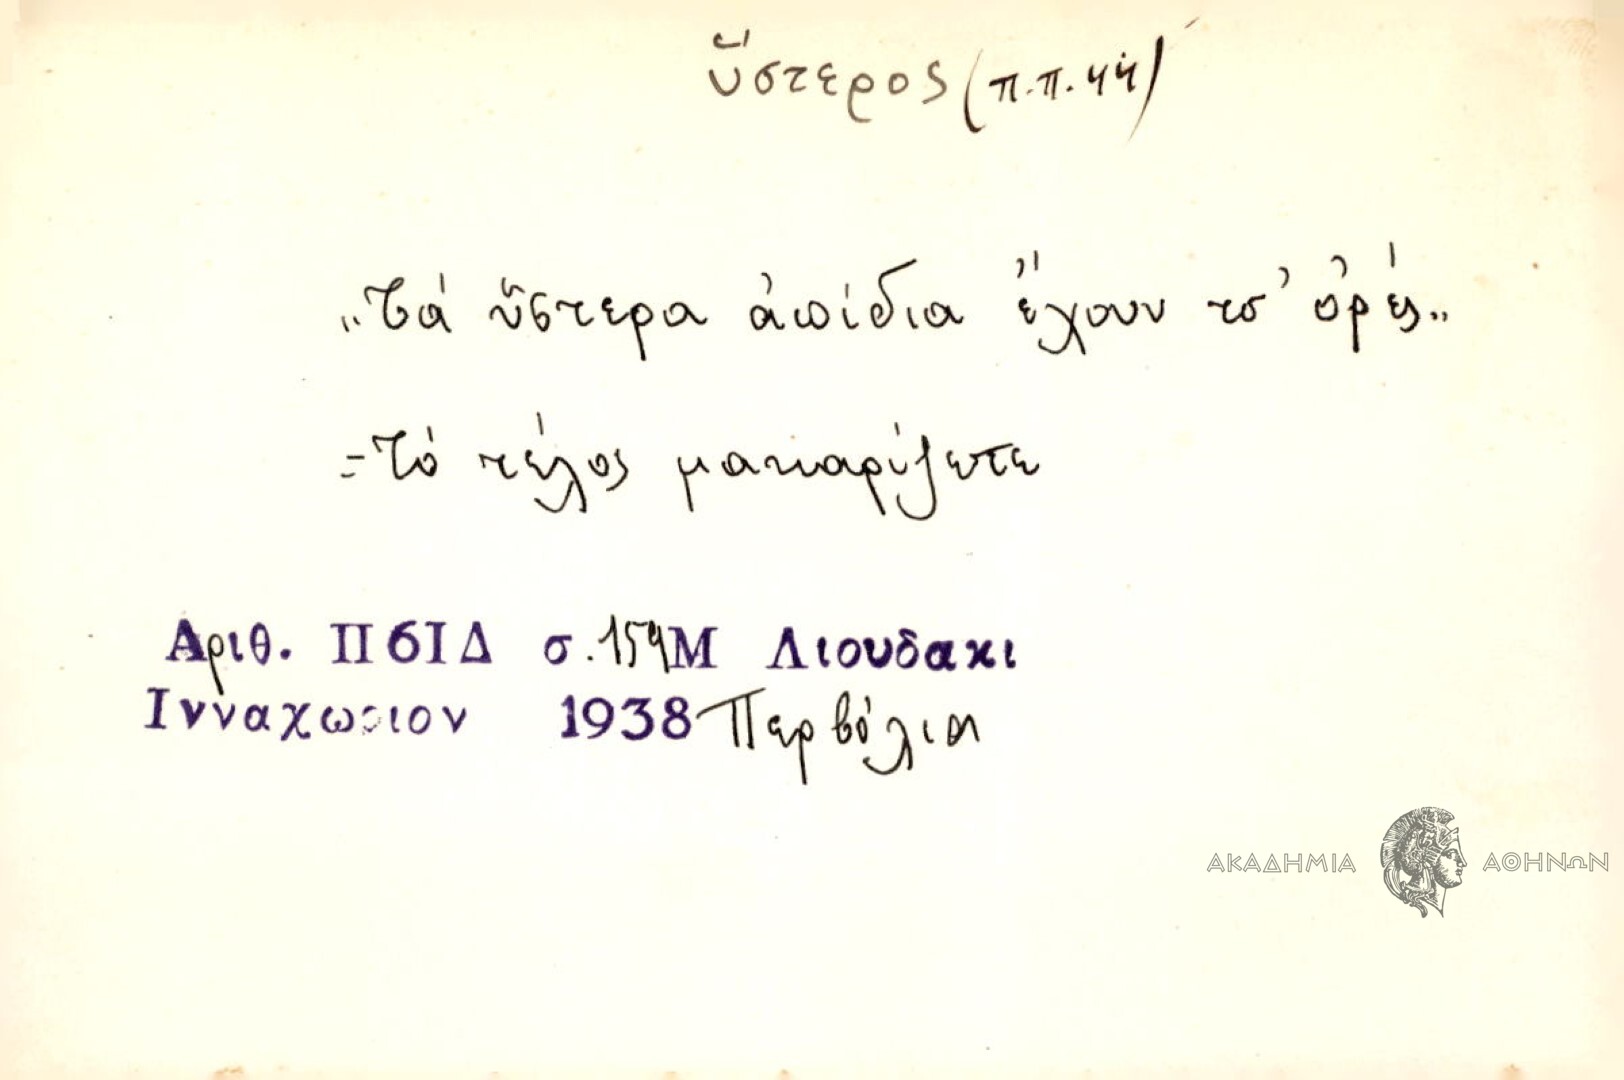 ὕστερος (π.π. 44)
„Τά ὕστερα ἀπίδια ἔχουν τσ' ὀρές„
=Τό τέλος μακαρίζετε
Αριθ. Π6ΙΔ σ. 159 Μ Λιουδακι
Ινναχωριον 1938 Περβόλια
ΑΚΑΔΗΜΙΑ ΑΘΗΝΩΝ